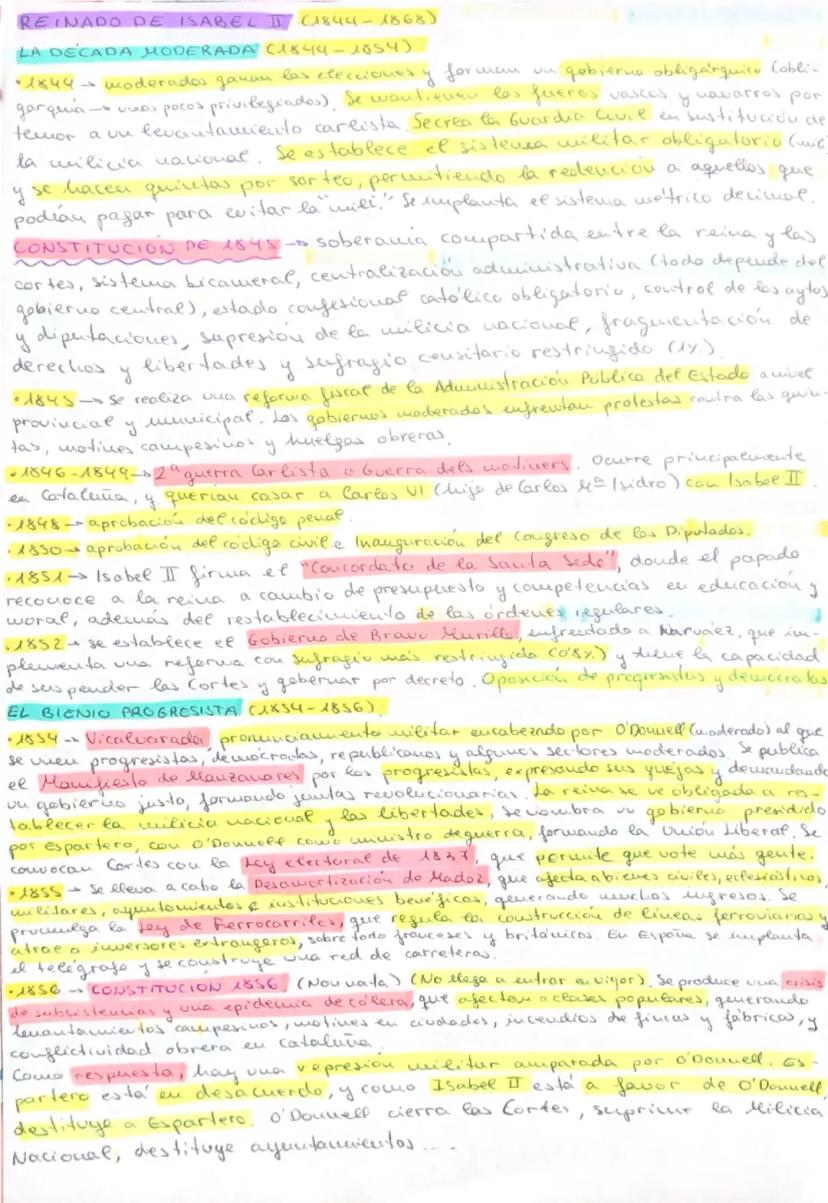 REINADO DE ISABEL II (1844-1868)
LA DÉCADA MODERADA (1844-1854)
·1844 → moderados ganan las elecciones y forman un gobierno obligárquico (obli-
garquía → unos pocos privilegiados). Se mantienen los fueros vascos y navarros por
temor a un levantamiento carlista. Se crea la Guardia Civil en sustitución de
la milicia nacional. Se establece el sistema militar obligatorio (mili)
y se hacen quintas por sorteo, permitiendo la redención a aquellos que
podían pagar para evitar la "mili." Se implanta el sistema métrico decimal.
CONSTITUCIÓN DE 1845 → soberanía compartida entre la reina y las
cortes, sistema bicameral, centralización administrativa (todo depende del
gobierno central), estado confesional católico obligatorio, control de los aytos
y diputaciones, supresión de la milicia nacional, fragmentación de
derechos y libertades y sufragio censitario restringido (1%).
·1845 → se realiza una reforma fiscal de la Administración Pública del Estado a nivel
provincial y municipal. Los gobiernos moderados enfrentan protestas contra las quin-
tas, motines campesinos y huelgas obreras.
·1846-1849 → 2ª guerra Carlista o Guerra dels matiners. Ocurre principalmente
en Cataluña, y querían casar a Carlos VI (hijo de Carlos Mª Isidro) con Isabel II.
·1848 → aprobación del código penal.
·1850 → aprobación del código civil e Inauguración del Congreso de los Diputados.
·1851 → Isabel II firma el "Concordato de la Santa Sede", donde el papado
reconoce a la reina a cambio de presupuesto y competencias en educación y
moral, además del restablecimiento de las órdenes regulares.
·1852 → se establece el Gobierno de Bravo Murillo, enfrentado a Narváez, que im-
plementa una reforma con sufragio más restringido (0'8%) y tiene la capacidad
de suspender las Cortes y gobernar por decreto. Oposición de progresistas y demócratas
EL BIENIO PROGRESISTA (1854-1856)
·1854 → Vicalvarada, pronunciamiento militar encabezado por O'Donnell (moderado) al que
se unen progresistas, demócradas, republicanos y algunos sectores moderados. Se publica
el Manifiesto de Manzanares por los progresistas, expresando sus quejas y demandando
un gobierno justo, formando juntas revolucionarias. La reina se ve obligada a res-
tablecer la milicia nacional y las libertades, se nombra un gobierno presidido
por Espartero, con O'Donnell como ministro de guerra, formando la Unión Liberal. Se
convocan Cortes con la Ley electoral de 1837, que permite que vote más gente.
·1855 → Se lleva a cabo la Desamortización de Madoz, que afecta a bienes civiles, eclesiásticos,
militares, ayuntamientos e instituciones benéficas, generando muchos ingresos. Se
promulga la Ley de Ferrocarriles, que regula la construcción de líneas ferroviarias y
atrae a inversores extrangeros, sobre todo franceses y británicos. En España se implanta
el telégrafo y se construye una red de carreteras.
·1856 → CONSTITUCIÓN 1856. (Non nata) (No llega a entrar en vigor). Se produce una crisis
de subsistencias y una epidemia de cólera, que afectan a clases populares, generando
levantamientos campesinos, motines en ciudades, incendios de fincas y fábricas, y
conflictividad obrera en Cataluña.
Como respuesta, hay una represión militar amparada por O'Donnell. Es-
partero está en desacuerdo, y como Isabel II está a favor de O'Donnell,
destituye a Espartero. O'Donnell cierra las Cortes, suprime la Milicia
Nacional, destituye ayuntamientos ....